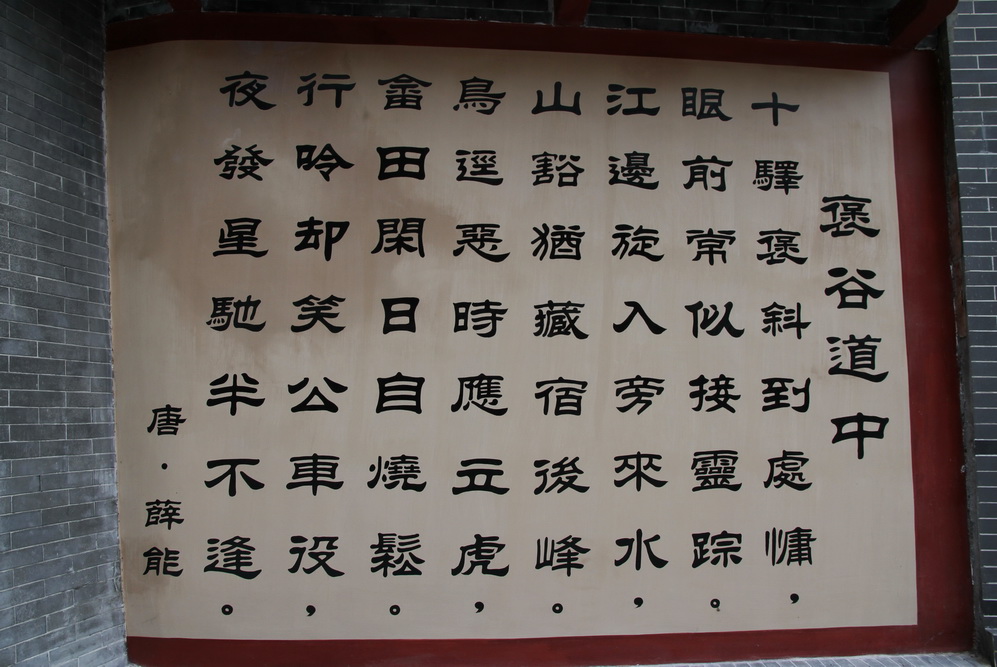 褒谷道中
十驛褒斜到處慵，
眼前常似接靈踪。
江邊旋入旁來水，
山豁猶藏宿後峰。
鳥逕惡時應立虎，
畬田閑日自燒鬆。
行吟却笑公車役，
夜發星馳半不逢。
唐·薛能